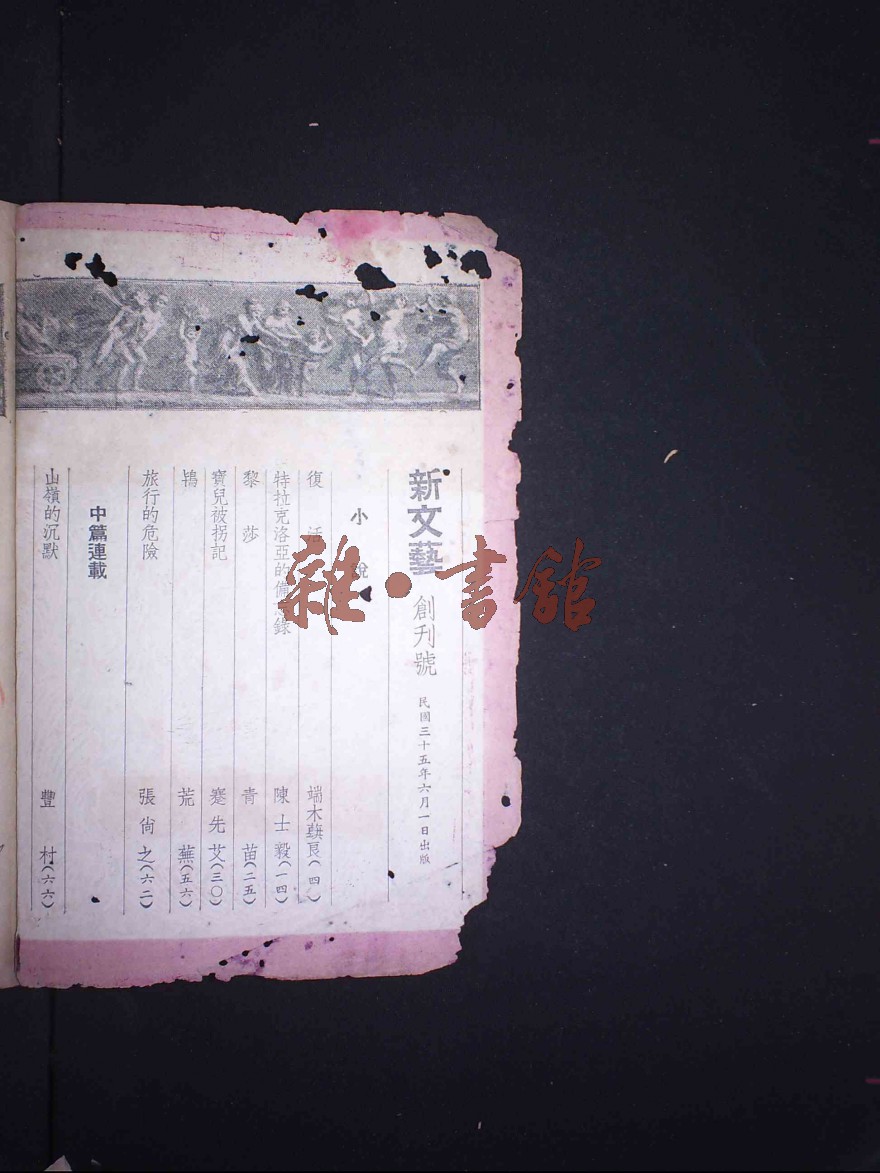 新文藝 創刊號 民國三十五年六月一日出版
小說
復活 端木蕻良(四)
特拉克洛亞的備忘錄 陳士毅(一四)
黎莎 青苗(二五)
寶兒被拐記 蹇先艾(三〇)
鴇 荒蕪(五六)
旅行的危險 張尙之(六二)
中篇連載
山嶺的沉默 豐村(六六)
雜·書館